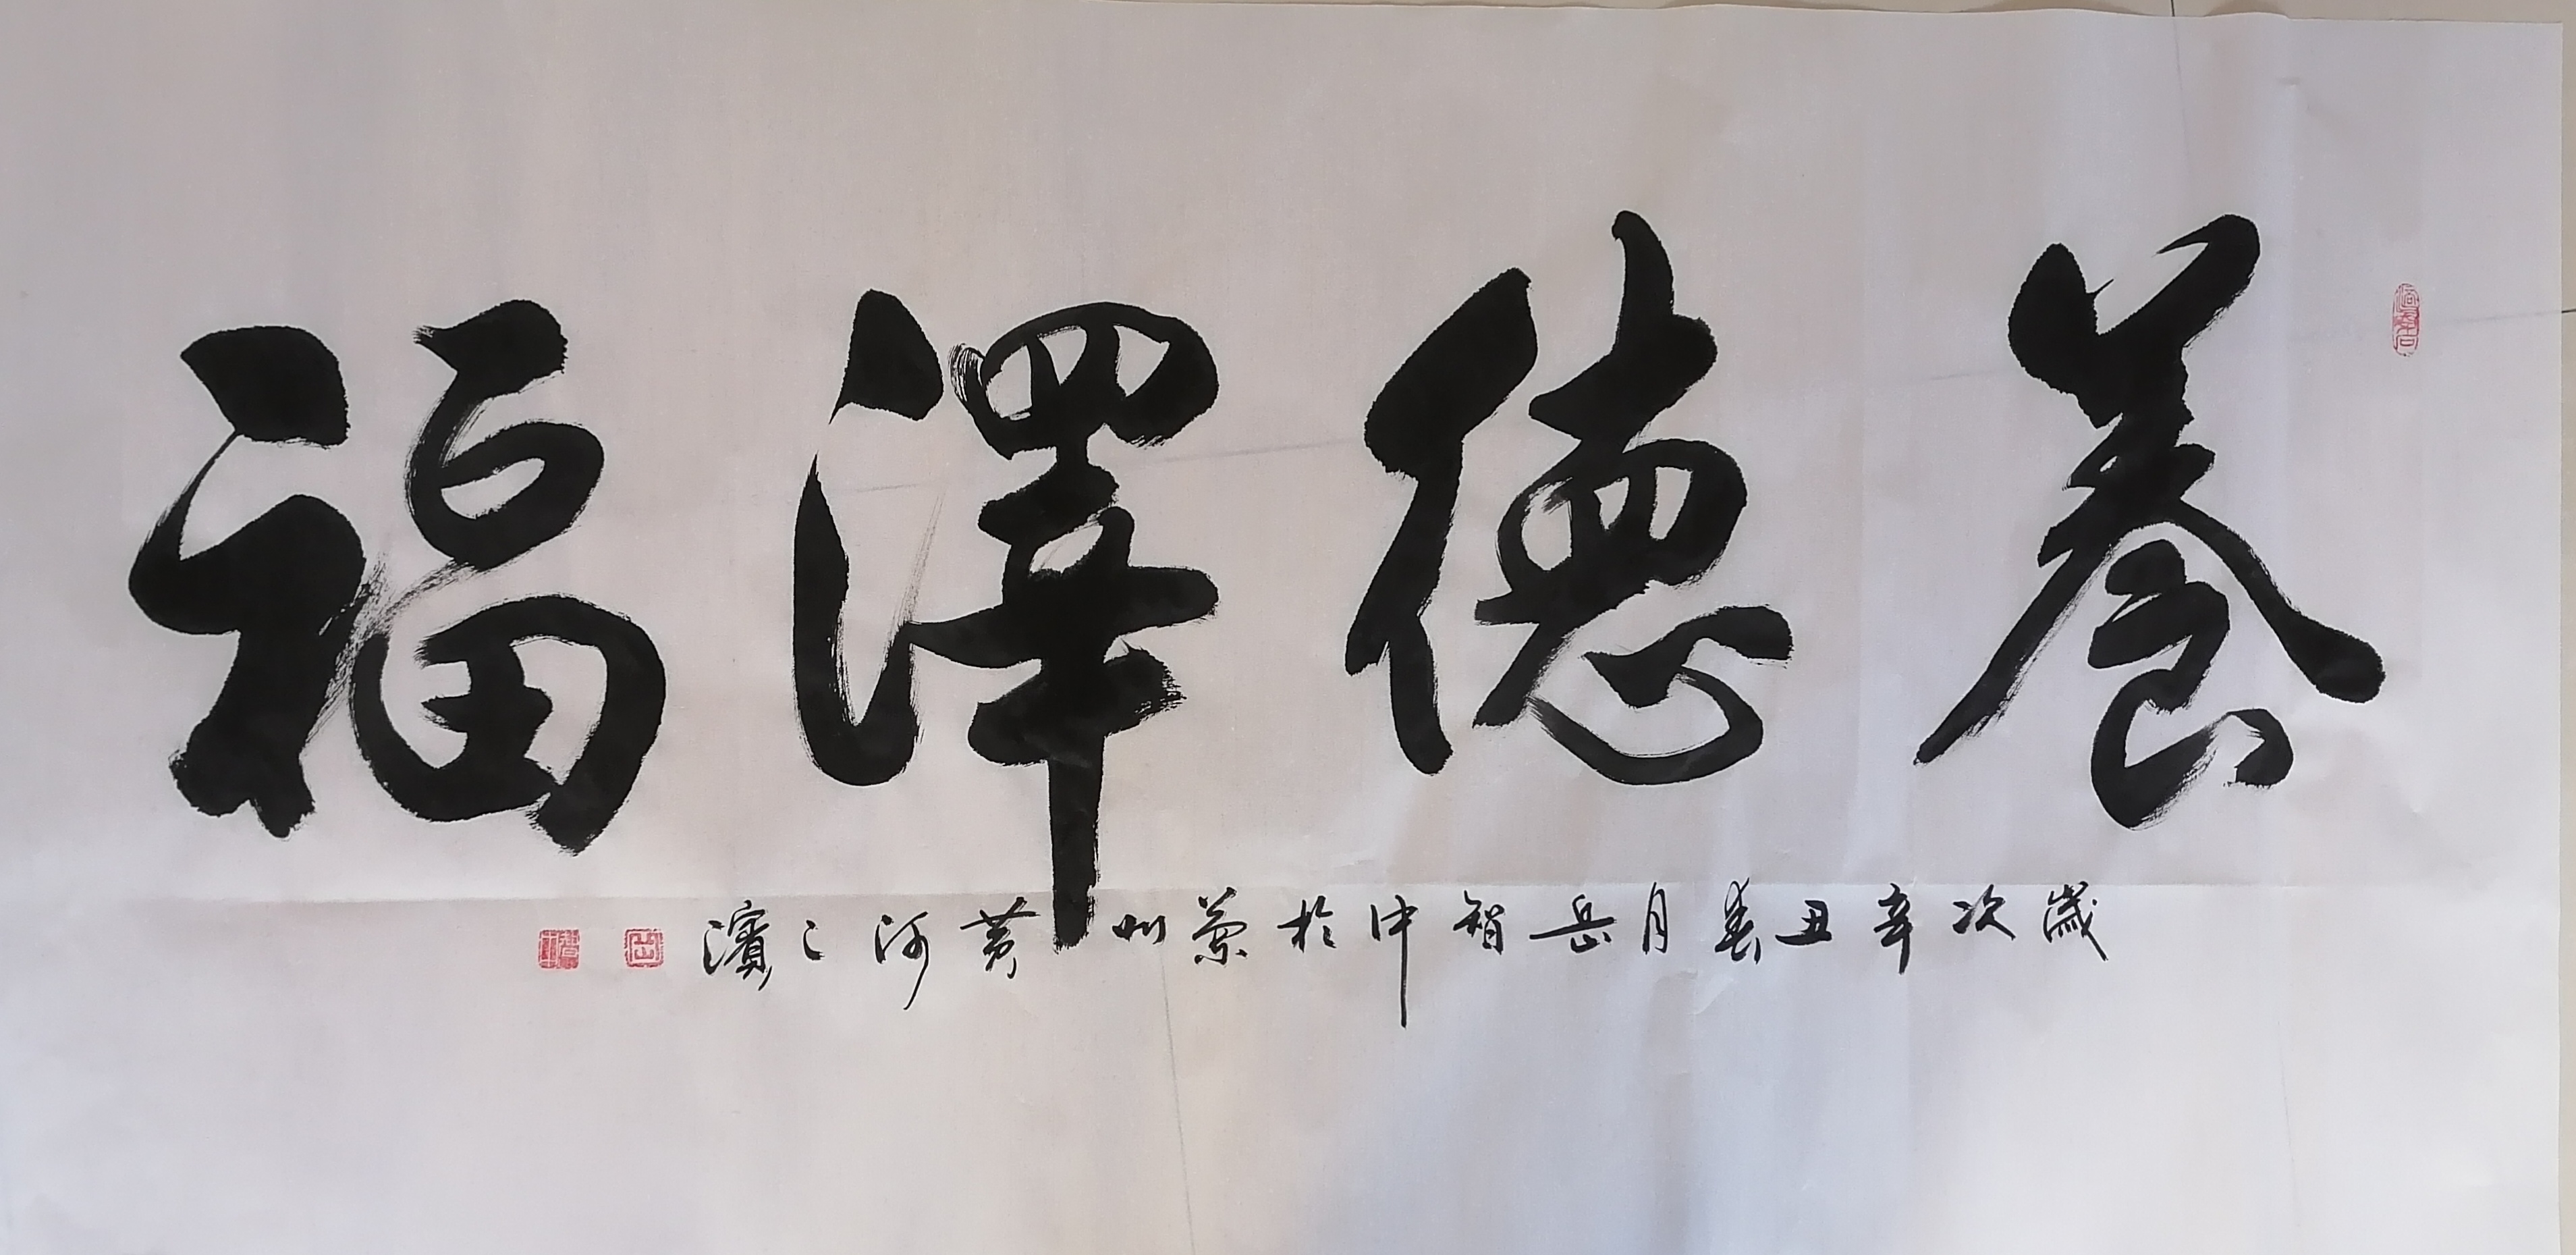 養德澤福
歲次辛丑春月岳智中於蘭州黃河之濱